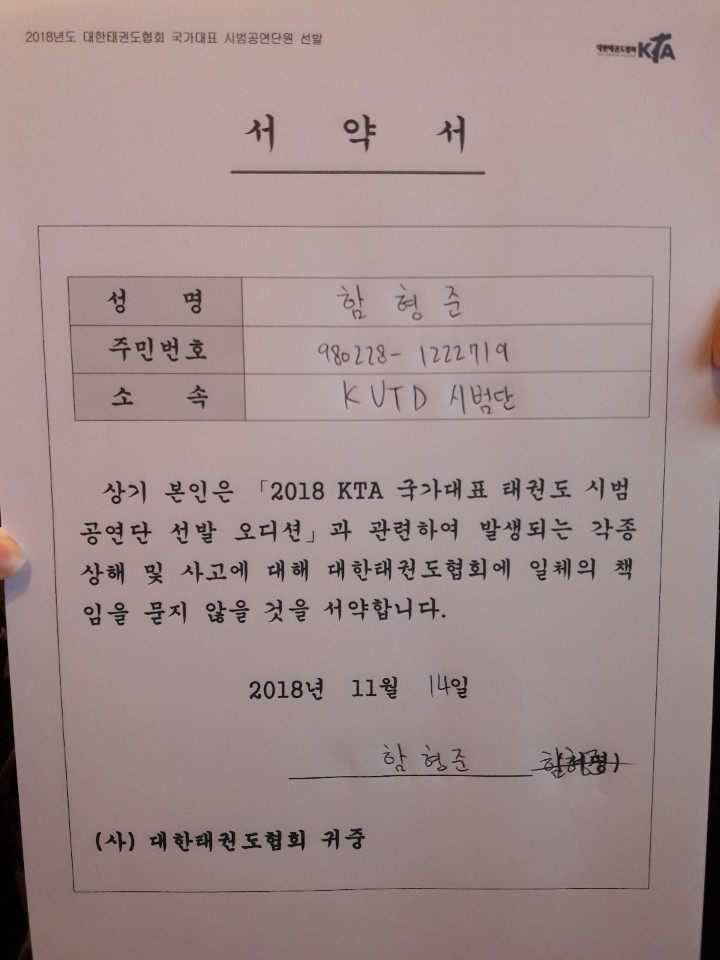 2018년도 대한태권도협회 국가대표 시범공연단원 선발
대한태권도협회 KTA
서 약 서
성 명 함 형 준
주민번호 980228-1222719
소 속 KUTD 시범단
상기 본인은 「2018 KTA 국가대표 태권도 시범
공연단 선발 오디션」과 관련하여 발생되는 각종
상해 및 사고에 대해 대한태권도협회에 일체의 책
임을 묻지 않을 것을 서약합니다.
2018년 11월 14일
함 형 준
(사) 대한태권도협회 귀중